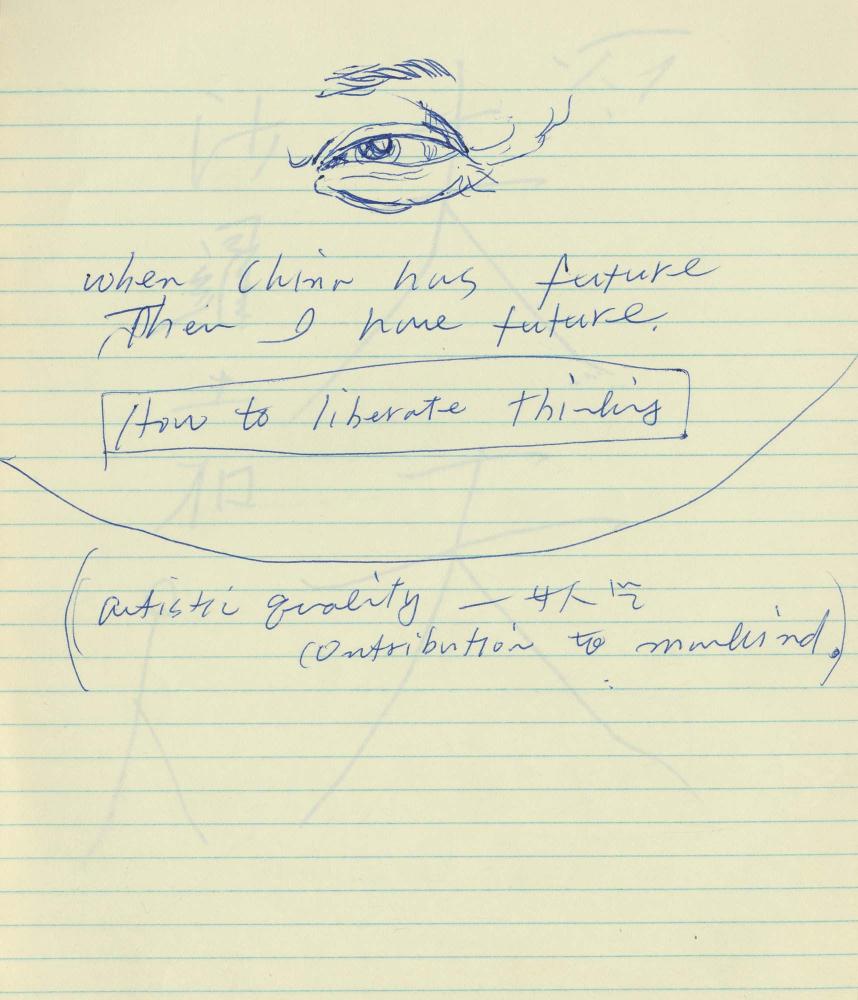 when China has future
Then I have future.
How to liberate thinking
(artistic quality —
contribution to mankind.)